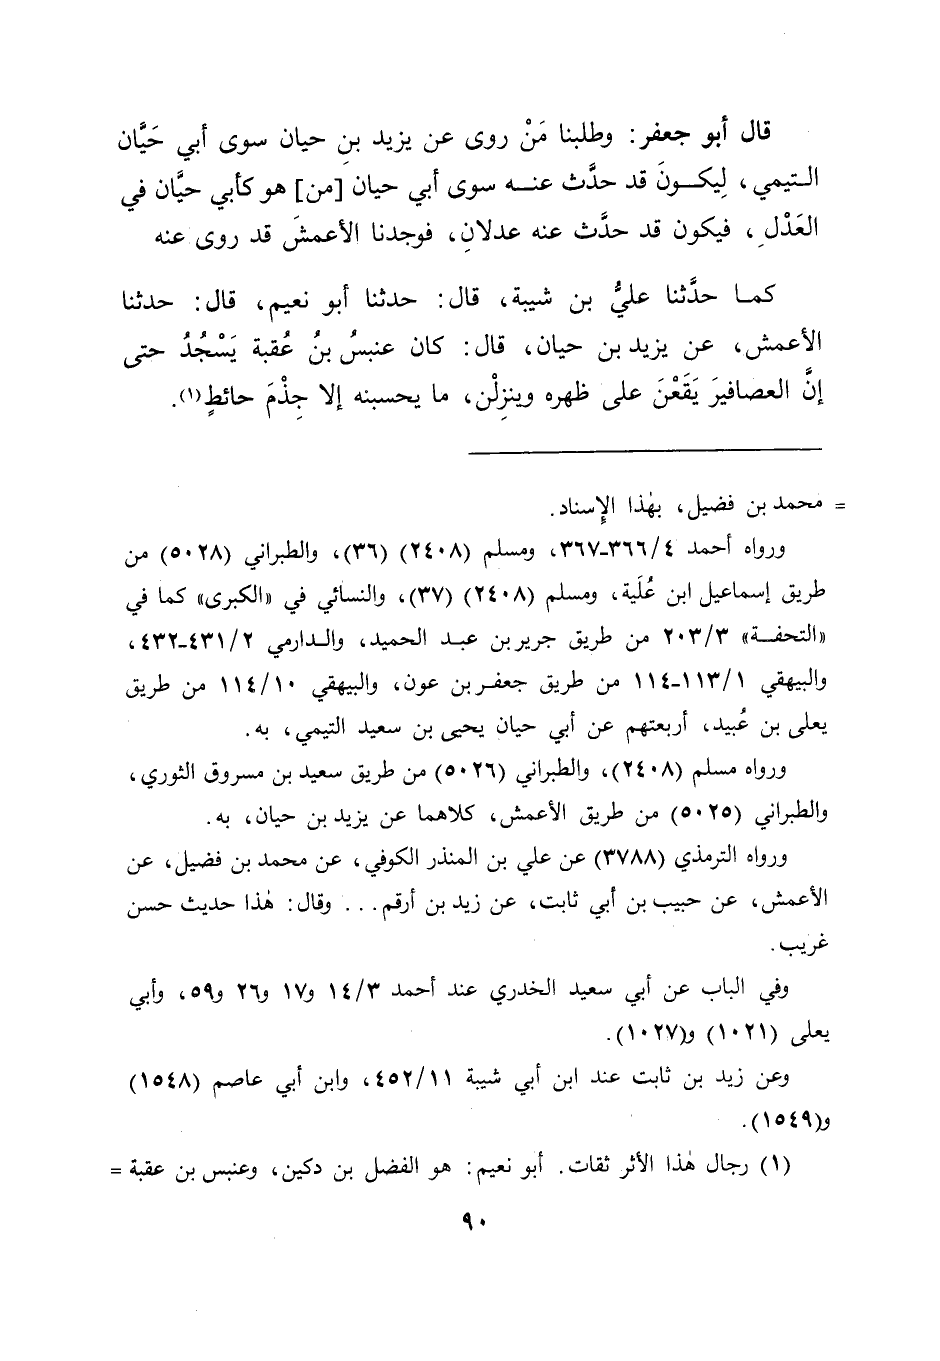 قال أبو جعفر: وطلبنا مَنْ روى عن يزيد بن حيان سوى أبي حَيَّان
التيمي، لِيكونَ قد حدَّث عنه سوى أبي حيان [من] هو كأبي حيَّان في
العَدْلِ، فيكون قد حدَّث عنه عدلانِ، فوجدنا الأعمشَ قد روى عنه
كما حدَّثنا عليُّ بن شيبة، قال: حدثنا أبو نعيم، قال: حدثنا
الأعمش، عن يزيد بن حيان، قال: كان عنبسُ بنُ عُقبة يَسْجُدُ حتى
إنَّ العصافيرَ يَقَعْنَ على ظهره وينزِلْن، ما يحسبنه إلا جِذْمَ حائطٍ(١).
= محمد بن فضيل، بهٰذا الإِسناد.
ورواه أحمد ٣٦٦/٤-٣٦٧، ومسلم (٢٤٠٨) (٣٦)، والطبراني (٥٠٢٨) من
طريق إسماعيل ابن عُلَية، ومسلم (٢٤٠٨) (٣٧)، والنسائي في «الكبرى» كما في
«التحفة» ٢٠٣/٣ من طريق جرير بن عبد الحميد، والدارمي ٤٣١/٢-٤٣٢،
والبيهقي ١١٣/١-١١٤ من طريق جعفر بن عون، والبيهقي ١١٤/١٠ من طريق
يعلى بن عُبيد، أربعتهم عن أبي حيان يحيى بن سعيد التيمي، به.
ورواه مسلم (٢٤٠٨)، والطبراني (٥٠٢٦) من طريق سعيد بن مسروق الثوري،
والطبراني (٥٠٢٥) من طريق الأعمش، كلاهما عن يزيد بن حيان، به.
ورواه الترمذي (٣٧٨٨) عن علي بن المنذر الكوفي، عن محمد بن فضيل، عن
الأعمش، عن حبيب بن أبي ثابت، عن زيد بن أرقم... وقال: هٰذا حديث حسن
غريب.
وفي الباب عن أبي سعيد الخدري عند أحمد ١٤/٣ و١٧ و٢٦ و٥٩، وأبي
يعلى (١٠٢١) و(١٠٢٧).
وعن زيد بن ثابت عند ابن أبي شيبة ٤٥٢/١١، وابن أبي عاصم (١٥٤٨)
و(١٥٤٩).
(١) رجال هٰذا الأثر ثقات. أبو نعيم: هو الفضل بن دكين، وعنبس بن عقبة =
٩٠